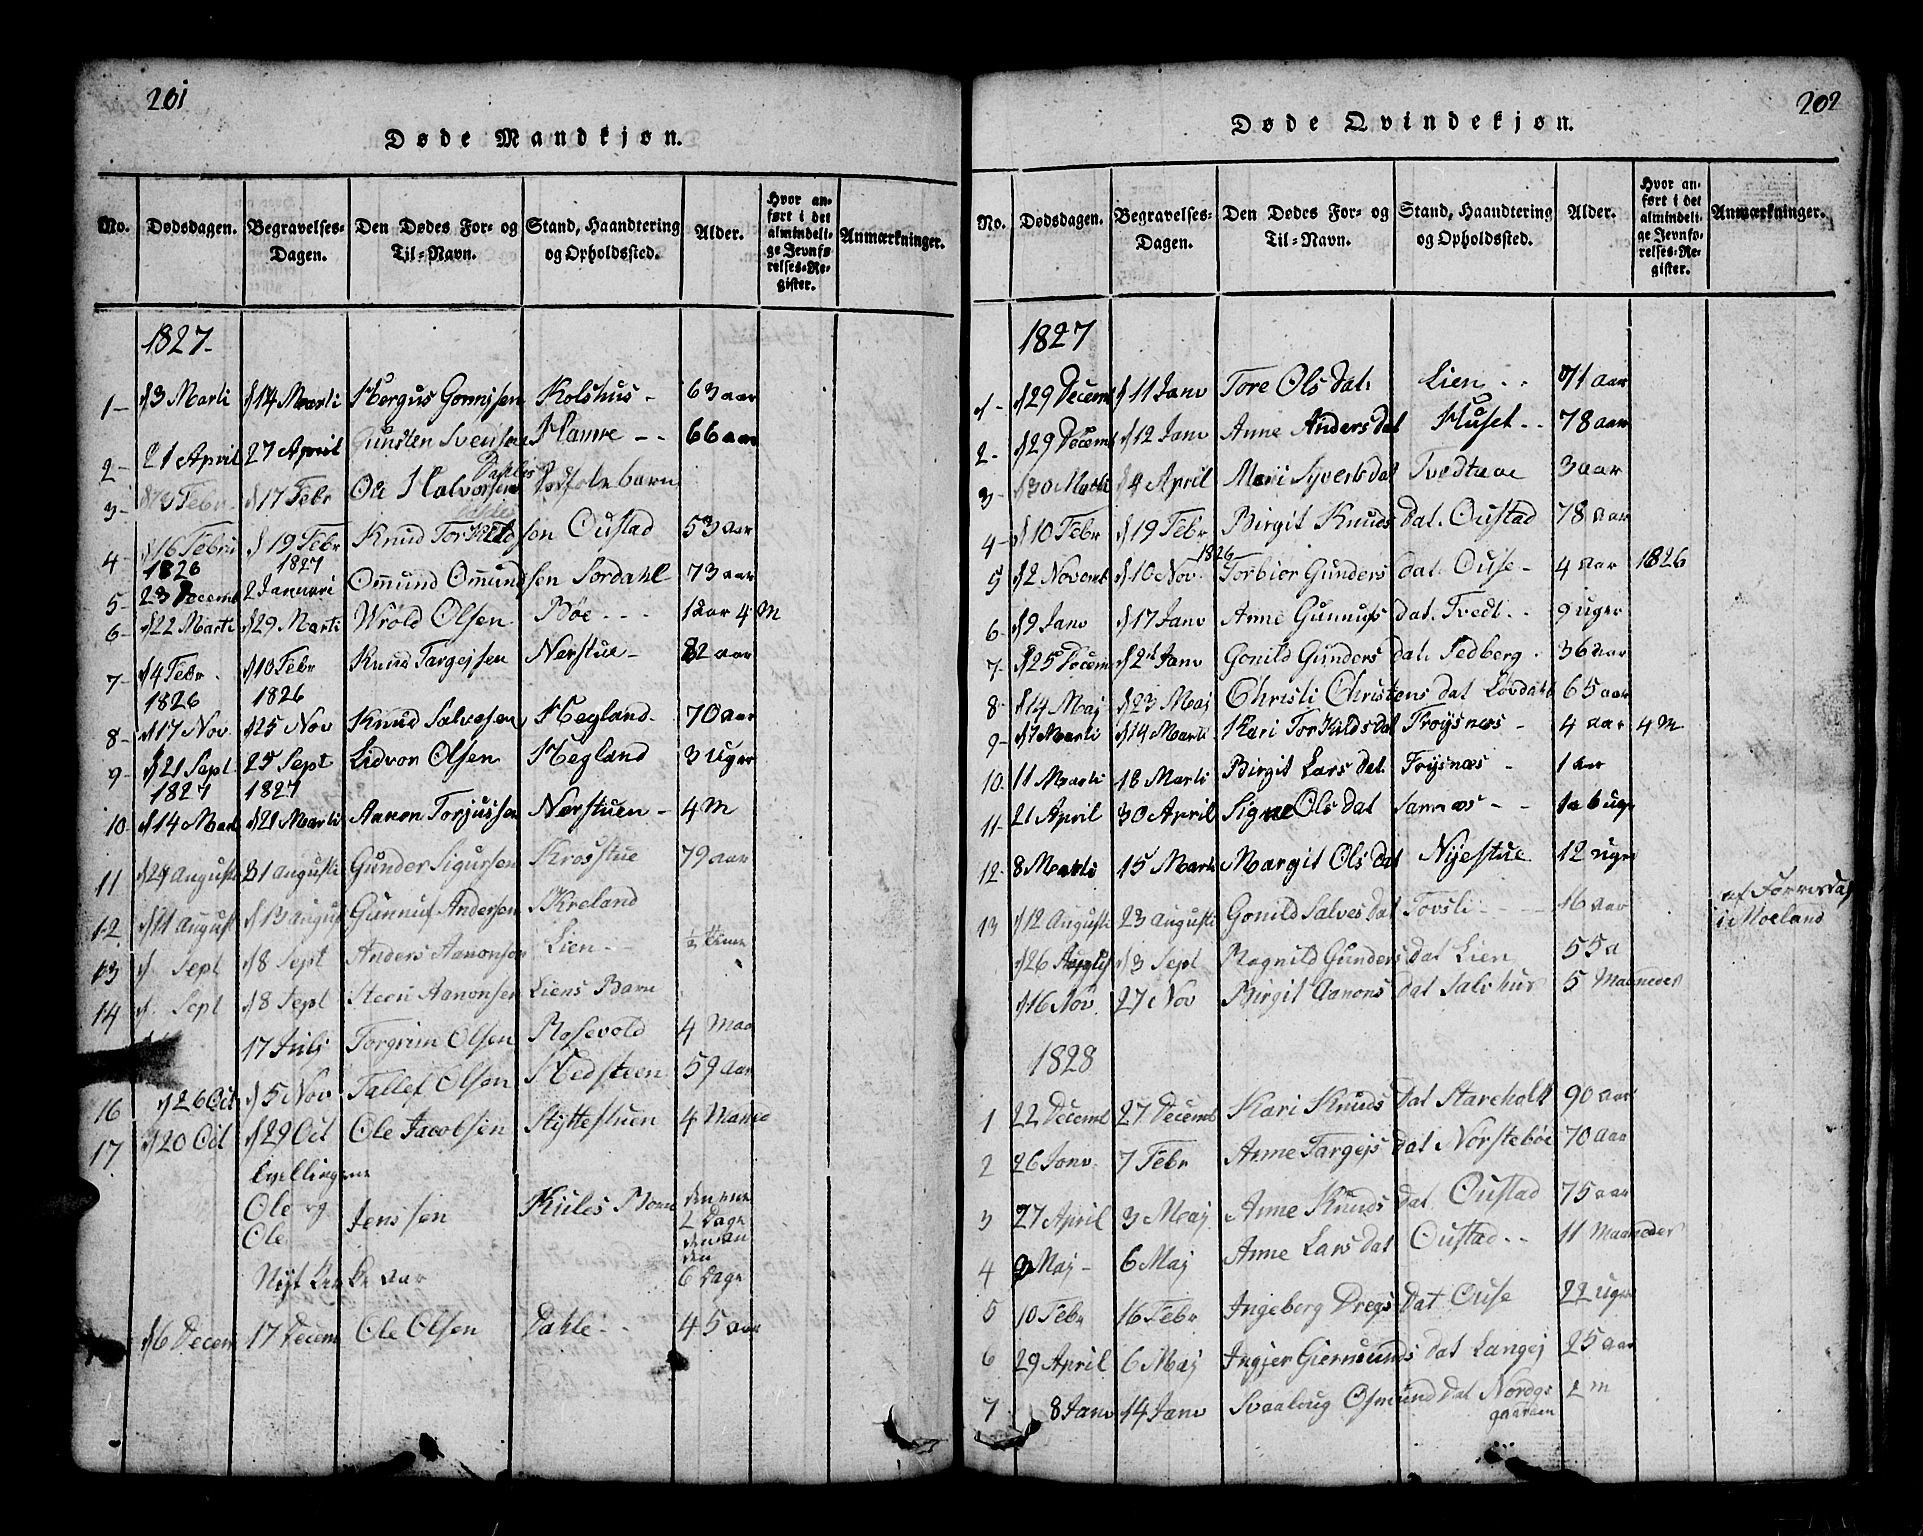 201
Døde Mandkjøn.
No. Dødsdagen. Begravelses-Dagen. Den Dødes For- og Til-Navn. Stand, Haandtering og Opholdssted. Alder. Hvor anført i det almindelige Jevnførelses-Register. Anmærkninger.
1827.
1- d 3 Marti d 14 Marti Hergus Gonnesen Kolshus - 63 aar
2- 21 April 27 April Gunsten Svensen Hamre - - 66 aar
Dahles
3- Febr. d 17 Febr Ole Halvorsen barn
4- d 16 Febru d 19 Febr Knud Torkildsen Oustad 53 aar
1826 1827
5- 23 Decemb 2 Januari Omund Omundsen Sordahl 73 aar
6- d 22 Marti d 29 Marti Wrold Olsen Bøe - - - 1 aar 4 M
7- d 4 Febr. d 10 Febr Knud Targejsen Nerstue - 82 aar
1826 1826
8- d 17 Nov d 25 Nov Knud Salvesen Hegland - 70 aar
9- d 21 Sept 25 Sept Lidvor Olsen Hegland 3 uger
1827 1827
10 d 14 Marti d 21 Marti Aanon Torjussen Nerstuen - 4 M
11 d 24 Augusti 31 Augusti Gunder Sigursen Krosstue 79 aar
12. d 11 August d 13 August Gunnuf Andersen Skreland
13 d Sept d 8 Sept Anders Aanonsen Lien - - ½ time
14 d Sept d 8 Sept Aanonsen Liens Barn
17 Juli Torgrim Olsen Rosevold 4 Maa
16 d 26 Oct d 5 Nov Tallef Olsen Hedsteen 59 aar
17 d 20 Oct d 29 Oct Ole Jacobsen Hyttestuen 4 Maane
tvillingene
Ole og
Ole
Jenssen Kiiles Bonn den ene 2 Dage den anden 6 Dage
Nyt Kirke aar
d 6 Decem 17 Decem Ole Olsen Dahle - - 45 aar
202
Døde Qvindekjøn.
No. Dødsdagen. Begravelses-Dagen. Den Dødes For- og Til-Navn. Stand, Haandtering og Opholdssted. Alder. Hvor anført i det almindelige Jevnførelses-Register. Anmærkninger.
1827
1- d 29 Decemb d 11 Janv Tore Ols dat. Lien - - 71 aar
2- d 29 Decemb d 12 Janv Anne Anders dat Huset - - 78 aar
3- d 30 Marti d 4 April Mari Syvers dat Tvedtane 3 aar
4- d 10 Febr d 19 Febr Birgit Knuds dat. Oustad 78 aar
1826
5 d 2 Novemb d 10 Nov. Torbior Gunders dat. Ouse - 4 aar 1826
6- d 9 Janv d 17 Janv Anne Gunnufs dat. Tvedt - 9 uger
7- d 25 Decem d 21 Janv Gonild Gunders dat. Sedberg - 36 aar
8- d 14 Maj d 23 Maj Christi Christens dat Løvdahl 65 aar
9- d 7 Marti d 14 Marti Kari Torkilds dat Frøysnæs - 4 aar 4 M
10. 11 Marti 18 Marti Birgit Lars dat. Frøysnæs - 1 aar
11- 21 April 30 April Signe Ols dat Samnøs - - 1a 6 uger
12- 8 Marti 15 Marti Margit Ols dat Nyestue 12 uger
13 d 12 Augusti 23 Augusti Gonild Salves dat Tovsli - - - 16 aar af Førresdal i Moeland
d 26 August d 3 Sept Ragnild Gunders dat Lien 55 a
d 16 Nov 27 Nov Birgit Aanons dat Salshus 5 Maaneder
1828
1 22 Decemb 27 Decemb Kari Knuds dat Stareholt 90 aar
2 26 Janv. 7 Febr Anne Targejs dat Norstebøe 70 aar
3 27 April 3 Maj Anne Knuds dat Oustad 75 aar
4 2 Maj - 6 Maj Anne Lars dat Oustad - - 11 Maaneder
5 10 Febr 16 Febr Ingeborg Dregs dat Ouse 22 uger
6 29 April 6 Maj Ingjer Giermunds dat Langej 25 aar
7 8 Janv 14 Janv Svaaloug Osmund dat Nordgaarden 2 m